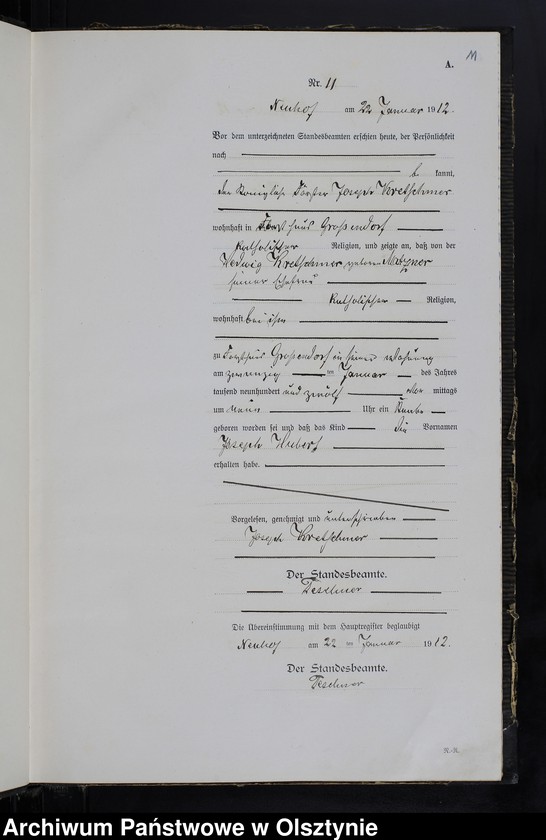 11
A.
Nr. 11
Neuhof am 22 Januar 1912.
Vor dem unterzeichneten Standesbeamten erschien heute, der Persönlichkeit
nach
be kannt,
der Königliche Förster Joseph Kretschmer
wohnhaft in Forsthaus Großendorf
katholischer Religion, und zeigte an, daß von der
Hedwig Kretschmer geborene
seiner Ehefrau
katholischer Religion,
wohnhaft bei ihm
zu Forsthaus Großendorf in seiner Wohnung
am zwanzig ten Januar des Jahres
tausend neunhundert und zwölf mittags
um neun Uhr ein Knabe
geboren worden sei und daß das Kind die Vornamen
Joseph Hubert
erhalten habe.
Vorgelesen, genehmigt und unterschrieben
Joseph Kretschmer
Der Standesbeamte.
Teschner
Die Übereinstimmung mit dem Hauptregister beglaubigt
Neuhof am 22 ten Januar 1912.
Der Standesbeamte.
Teschner
R.-R.
Archiwum Państwowe w Olsztynie